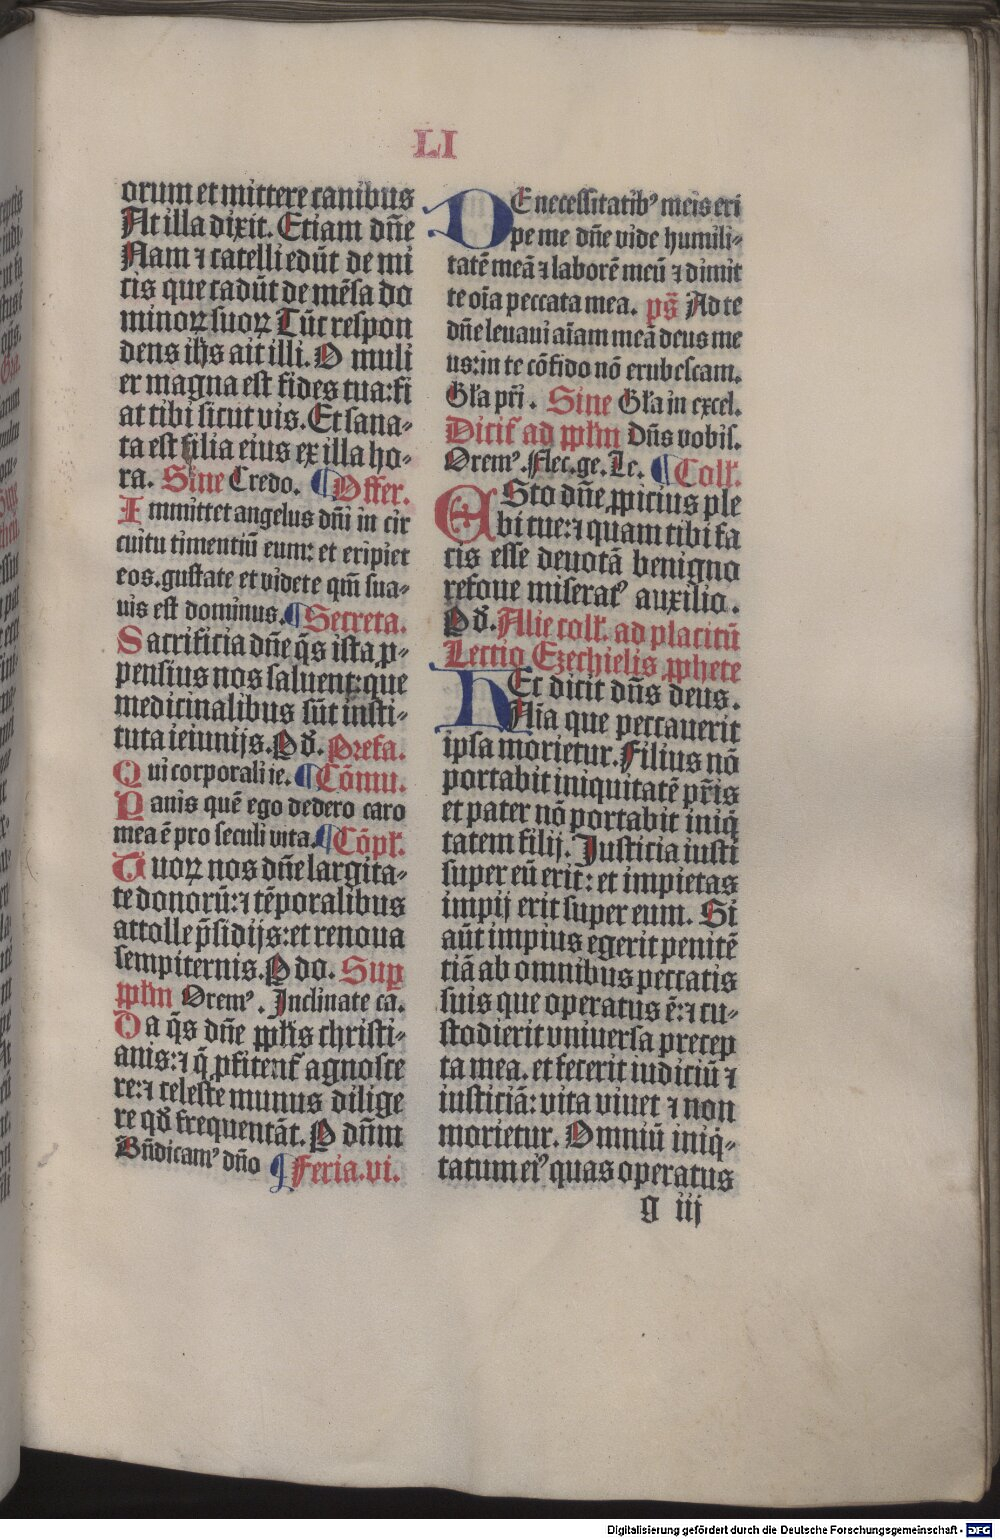 LI
orum et mittere canibus
At illa dixit. Etiam dn̄e
Nam ⁊ catelli edūt de mi
cis que cadūt de mēsa do
minoꝝ suoꝝ Tūc respon
dens ih̄s ait illi. O muli
er magna est fides tua: fi
at tibi sicut vis. Et sana-
ta est filia eius ex illa ho-
ra. Sine Credo. ¶ Offer.
Immittet angelus dn̄i in cir
cuitu timentiū eum: et eripiet
eos. gustate et videte qm̄ sua-
uis est dominus. ¶ Secreta.
Sacrificia dn̄e q̄s ista ꝓ-
pensius nos saluent: que
medicinalibus sūt insti-
tuta ieiunijs. P đ. Prefa.
Qui corporali ie. ¶ Cōmu.
Panis quē ego dedero caro
mea ē pro seculi vita. ¶ Cōpl'.
Tuoꝝ nos dn̄e largita-
te donorū: ⁊ tēporalibus
attolle p̄sidijs: et renoua
sempiternis. P do. Suꝑ
ppl'm Orem⁹. Inclinate ca.
Da q̄s dn̄e ppl'is christi-
anis: ⁊ q̄ ꝓfitent᷑ agnosce
re: ⁊ celeste munus dilige
re qđ frequentāt. P dn̄m
Bn̄dicam⁹ dn̄o ¶ Feria. vi.
DE necessitatib⁹ meis eri
pe me dn̄e vide humili-
tatē meā ⁊ laborē meū ⁊ dimit
te oīa peccata mea. ps̄ Ad te
dn̄e leuaui aīam meā deus me
us: in te cōfido nō erubescam.
Gl'a pr̄i. Sine Gl'a in excel.
Dicit᷑ ad ppl'm Dn̄s vobis.
Orem⁹. Flec. ge. Le. ¶ Coll'.
ESto dn̄e ꝓpicius ple
bi tue: ⁊ quam tibi fa
cis esse deuotā benigno
refoue miserat⁹ auxilio.
P đ. Alie coll'. ad placitū
Lectio Ezechielis ꝓphete
HEc dicit dn̄s deus.
Aīa que peccauerit
ipsa morietur. Filius nō
portabit iniquitatē pr̄is
et pater nō portabit iniq̄
tatem filij. Justicia iusti
super eū erit: et impietas
impij erit super eum. Si
aūt impius egerit penitē
tiā ab omnibus peccatis
suis que operatus ē: ⁊ cu-
stodierit vniuersa precep
ta mea. et fecerit iudiciū ⁊
iusticiā: vita viuet ⁊ non
morietur. Omniū iniq̄-
tatum ei⁹ quas operatus
g iij
Digitalisierung gefördert durch die Deutsche Forschungsgemeinschaft - DFG